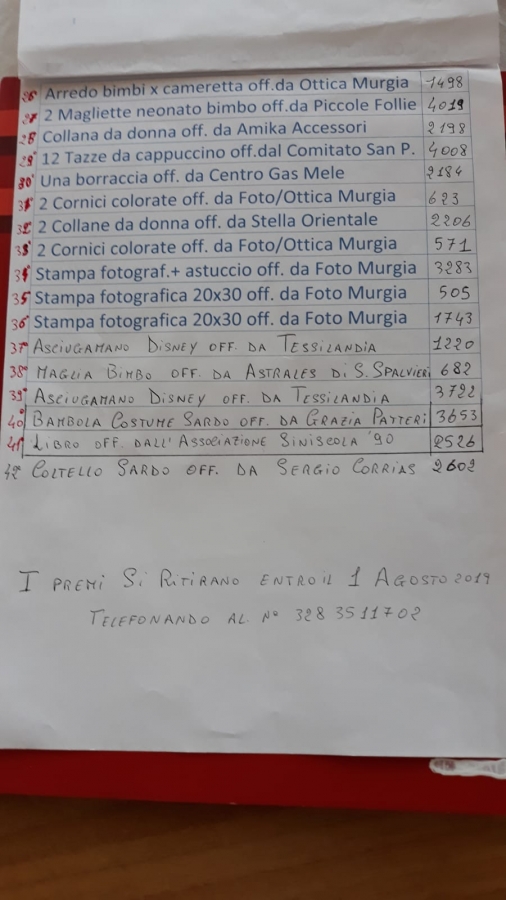 26° Arredo bimbi x cameretta off.da Ottica Murgia 1498
27° 2 Magliette neonato bimbo off.da Piccole Follie 4019
28° Collana da donna off. da Amika Accessori 2198
29° 12 Tazze da cappuccino off.dal Comitato San P. 4008
30° Una borraccia off. da Centro Gas Mele 2184
31° 2 Cornici colorate off. da Foto/Ottica Murgia 623
32° 2 Collane da donna off. da Stella Orientale 2206
33° 2 Cornici colorate off. da Foto/Ottica Murgia 571
34° Stampa fotograf.+ astuccio off. da Foto Murgia 3283
35° Stampa fotografica 20x30 off. da Foto Murgia 505
36° Stampa fotografica 20x30 off. da Foto Murgia 1743
37° ASCIUGAMANO DISNEY OFF. DA TESSILANDIA 1220
38° MAGLIA BIMBO OFF. DA ASTRALES DI S. SPALVIERI 682
39° ASCIUGAMANO DISNEY OFF. DA TESSILANDIA 3722
40° BAMBOLA COSTUME SARDO OFF. DA GRAZIA PATTERI 3653
41° LIBRO OFF. DALL'ASSOCIAZIONE SINISCOLA '90 2526
42° COLTELLO SARDO OFF. DA SERGIO CORRIAS 2602
I PREMI SI RITIRANO ENTRO IL 1 AGOSTO 2019
TELEFONANDO AL N° 328 3511702